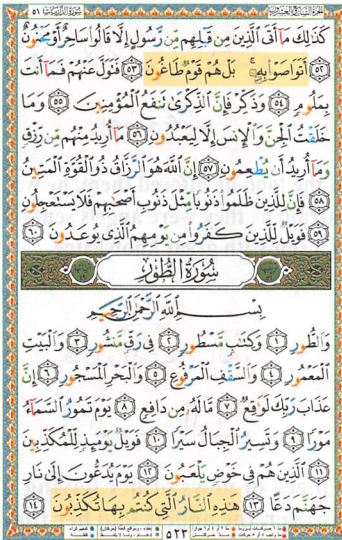 سُورَةُ الذَّارِيَاتِ ٥١
كَذَٰلِكَ مَآ أَتَى ٱلَّذِينَ مِن قَبْلِهِم مِّن رَّسُولٍ إِلَّا قَالُوا۟ سَاحِرٌ أَوْ مَجْنُونٌ
٥٢ أَتَوَاصَوْا۟ بِهِۦ ۚ بَلْ هُمْ قَوْمٌ طَاغُونَ ٥٣ فَتَوَلَّ عَنْهُمْ فَمَآ أَنتَ
بِمَلُومٍ ٥٤ وَذَكِّرْ فَإِنَّ ٱلذِّكْرَىٰ تَنفَعُ ٱلْمُؤْمِنِينَ ٥٥ وَمَا
خَلَقْتُ ٱلْجِنَّ وَٱلْإِنسَ إِلَّا لِيَعْبُدُونِ ٥٦ مَآ أُرِيدُ مِنْهُم مِّن رِّزْقٍ
وَمَآ أُرِيدُ أَن يُطْعِمُونِ ٥٧ إِنَّ ٱللَّهَ هُوَ ٱلرَّزَّاقُ ذُو ٱلْقُوَّةِ ٱلْمَتِينُ
٥٨ فَإِنَّ لِلَّذِينَ ظَلَمُوا۟ ذَنُوبًا مِّثْلَ ذَنُوبِ أَصْحَـٰبِهِمْ فَلَا يَسْتَعْجِلُونِ
٥٩ فَوَيْلٌ لِّلَّذِينَ كَفَرُوا۟ مِن يَوْمِهِمُ ٱلَّذِى يُوعَدُونَ ٦٠
سُورَةُ الطُّورِ
بِسْمِ ٱللَّهِ ٱلرَّحْمَـٰنِ ٱلرَّحِيمِ
وَٱلطُّورِ ١ وَكِتَـٰبٍ مَّسْطُورٍ ٢ فِى رَقٍّ مَّنشُورٍ ٣ وَٱلْبَيْتِ
ٱلْمَعْمُورِ ٤ وَٱلسَّقْفِ ٱلْمَرْفُوعِ ٥ وَٱلْبَحْرِ ٱلْمَسْجُورِ ٦ إِنَّ
عَذَابَ رَبِّكَ لَوَٰقِعٌ ٧ مَّا لَهُۥ مِن دَافِعٍ ٨ يَوْمَ تَمُورُ ٱلسَّمَآءُ
مَوْرًا ٩ وَتَسِيرُ ٱلْجِبَالُ سَيْرًا ١٠ فَوَيْلٌ يَوْمَئِذٍ لِّلْمُكَذِّبِينَ
١١ ٱلَّذِينَ هُمْ فِى خَوْضٍ يَلْعَبُونَ ١٢ يَوْمَ يُدَعُّونَ إِلَىٰ نَارِ
جَهَنَّمَ دَعًّا ١٣ هَـٰذِهِ ٱلنَّارُ ٱلَّتِى كُنتُم بِهَا تُكَذِّبُونَ ١٤
٥٢٣